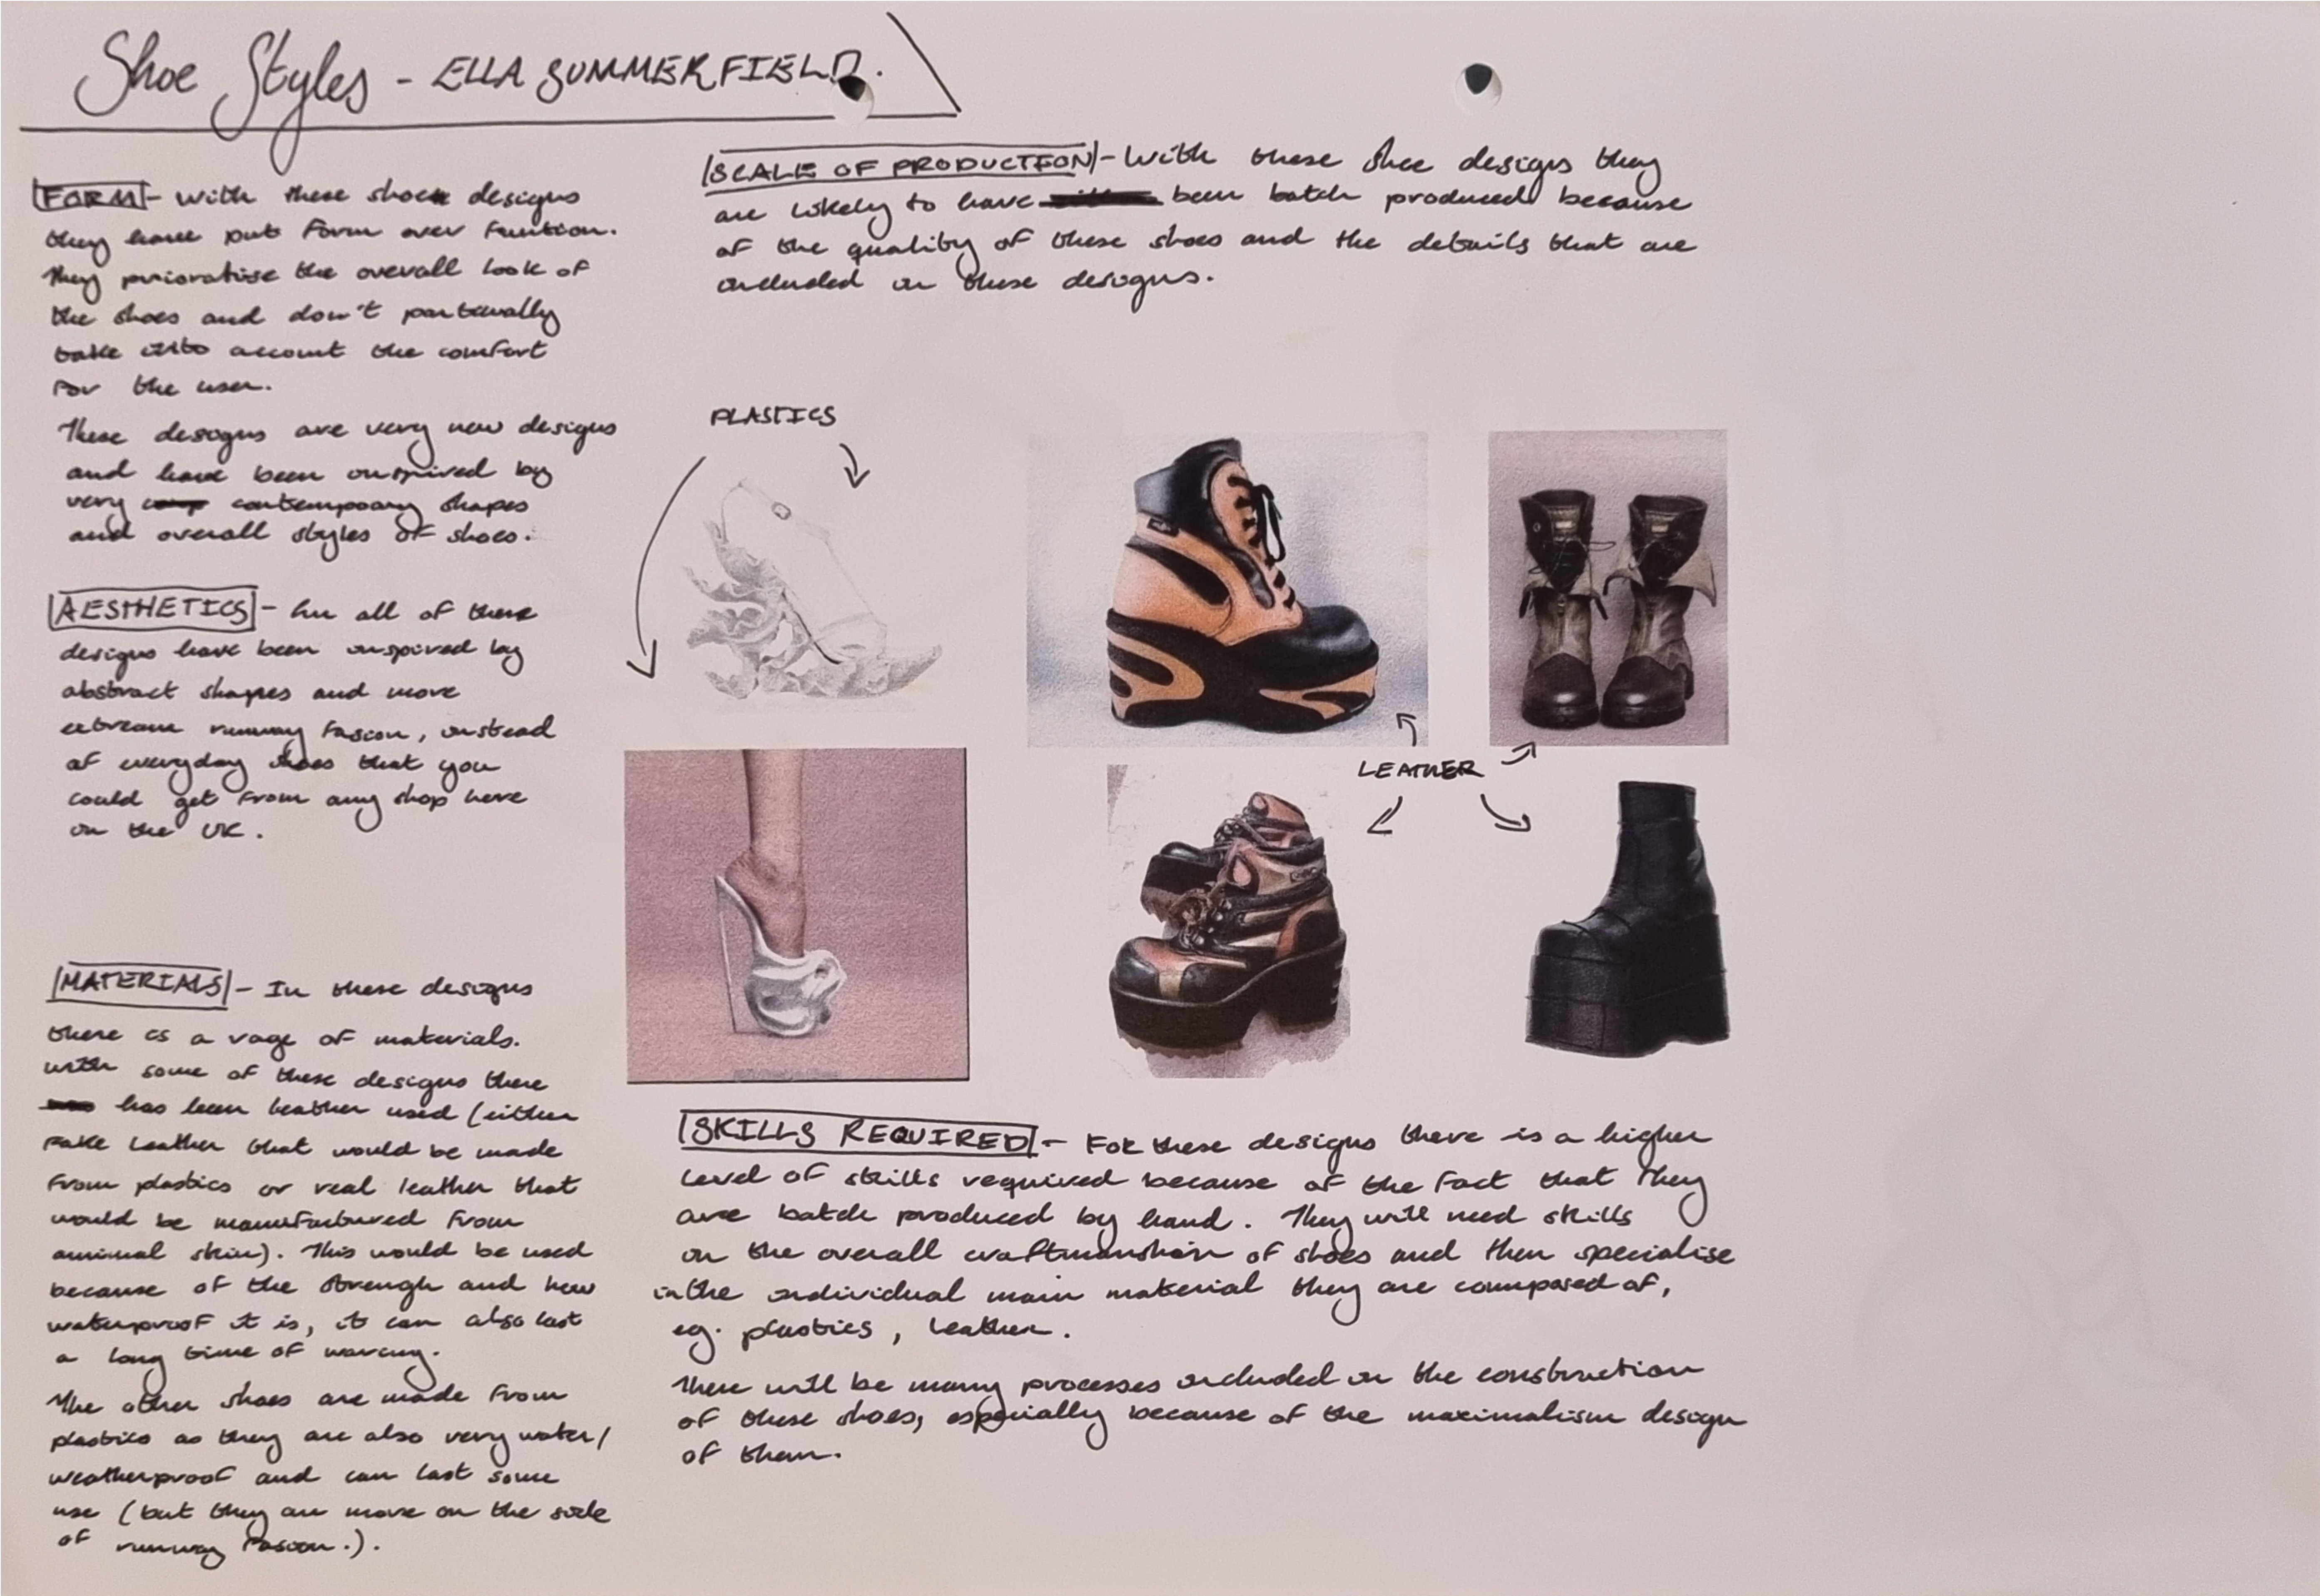 Shoe Styles - ELLA SUMMERFIELD.
FORM - With these shoe designs
they have put form over funtion.
They prioratise the overall look of
the shoes and don't partewally
take into account the comfort
for the user.
These designs are very new designs
and have been inspired by
very contempoary shapes
and overall styles of shoes.
AESTHETICS - all of these
designs have been inspired by
abstract shapes and more
extreame runway fasion, instead
of everyday shoes that you
could get from any shop here
in the UK.
MATERIALS - In these designs
there is a rage of materials.
with some of these designs there
has been leather used (either
fake leather that would be made
from plastics or real leather that
would be manufactured from
animal skin). This would be used
because of the strengh and how
waterproof it is, it can also last
a long time of waring.
The other shoes are made from
plastics as they are also very water/
weatherproof and can last some
use (but they are more on the side
of runway fasion.).
SCALE OF PRODUCTION - With these shoe designs they
are likely to have been batch produced because
of the quality of these shoes and the details that are
included in these designs.
PLASTICS
LEATHER
SKILLS REQUIRED - FOR these designs there is a higher
level of skills required because of the fact that they
are batch produced by hand. They will need skills
in the overall craftmanship of shoes and then specialise
in the individual main material they are composed of,
eg. plastics, leather.
There will be many processes included in the construction
of these shoes, especially because of the maximalism design
of them.